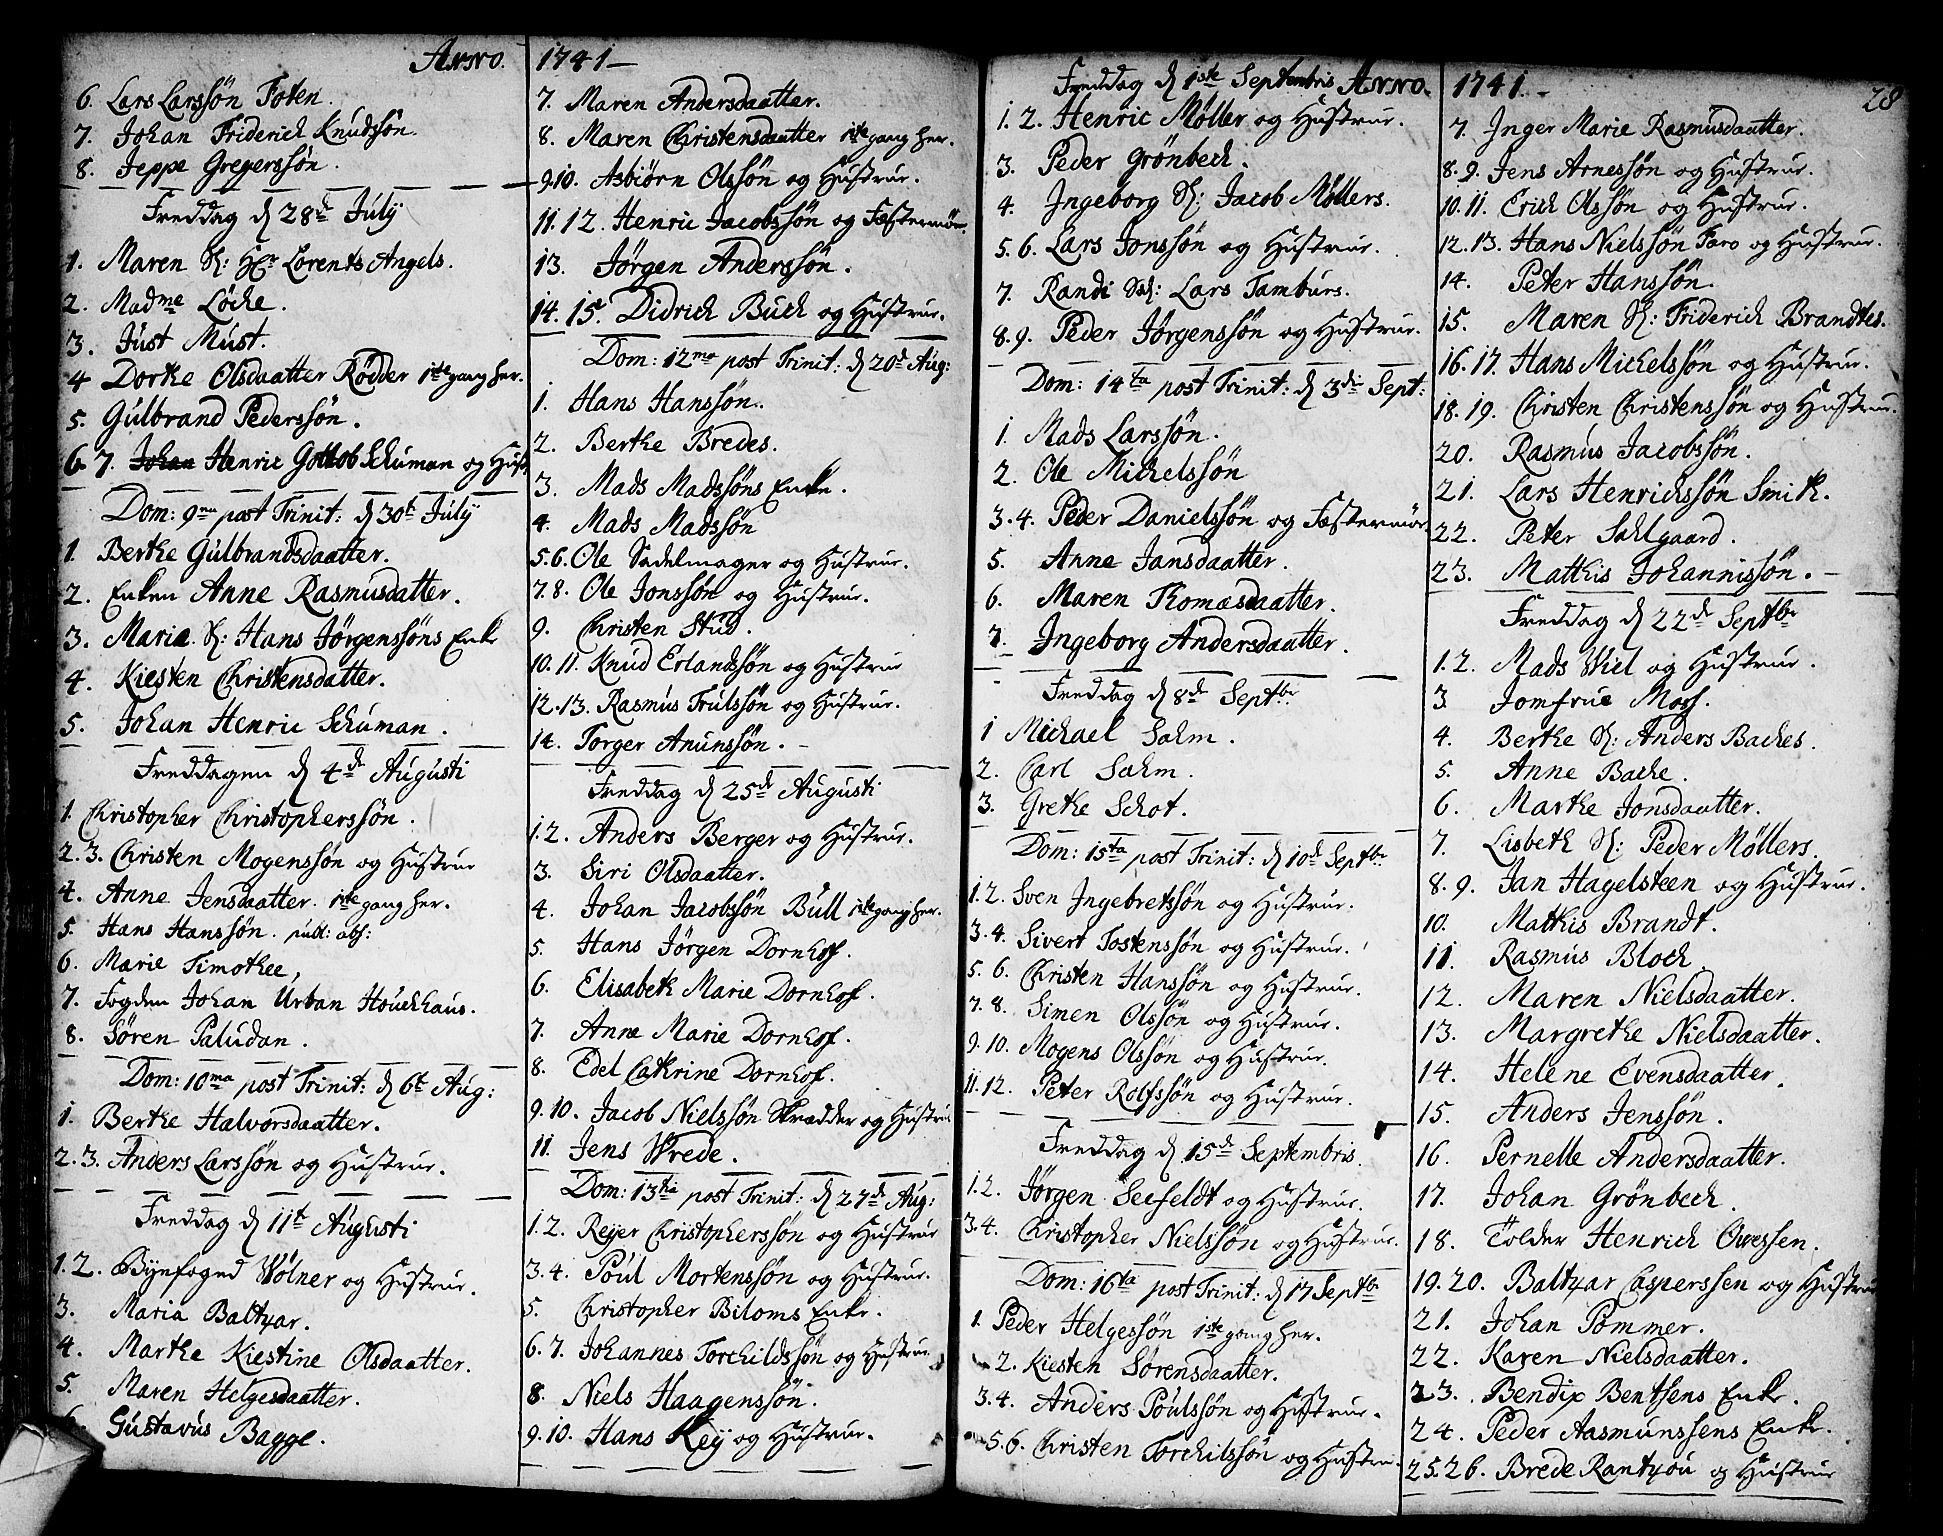 Anno. 1741.
6. Lars Larssøn Foten.
7. Johan Friderich Knudssøn.
8. Jeppe Gregerssøn.
Freddag d 28de July
1. Maren S: Hr Lorents Angels.
2. Madme Løche.
3. Just Must.
4 Dorthe Olsdaatter Rødder 1ste gang her.
5. Gulbrand Pederssøn.
6. 7. Johan Henric Gottlob Schuman og Hust
Dom: 9na post Trinit: d 30te July
1. Berthe Gulbrandsdaatter.
2. Enken Anne Rasmusdatter.
3. Maria S: Hans Jørgenssøns Enke
4. Kiesten Christensdatter.
5. Johan Henric Schuman.
Freddagen d 4de Augusti
1. Christopher Christopherssøn.
2.3. Christen Mogenssøn og Hustrur
4. Anne Jensdaatter. 1ste gang her.
5. Hans Hanssøn. publ: abs:
6. Marie Timothee,
7. Fogden Johan Urban Houchhaus.
8. Søren Paludan.
Dom: 10ma post Trinit: d 6te Aug:
1. Berthe Halvorsdaatter.
2.3. Anders Larssøn og Hustrur.
Freddag d 11te Augusti
1.2. Byefoged Wølner og Hustrur.
3. Maria Baltzar.
4. Marthe Kiestine Olsdaatter.
5. Maren Helgesdaatter.
6. Gustavus Bagge.
7. Maren Andersdaatter.
8. Maren Christensdaatter 1ste gang her.
9.10. Asbiørn Olssøn og Hustrur.
11.12. Henric Jacobssøn og Fæstermøe
13. Jørgen Anderssøn.
14.15. Didrich Buch og Hustrur.
Dom: 12ma post Trinit: d 20de Aug:
1. Hans Hanssøn.
2. Berthe Bredes.
3. Mads Madssøns Enke.
4. Mads Madssøn
5.6. Ole Sadelmager og Hustrur.
7.8. Ole Jonssøn og Hustrur.
9. Christen Stud.
10.11. Knud Erlandssøn og Hustrur
12.13. Rasmus Trulssøn og Hustrur.
14. Torger Anunssøn.
Freddag d 25de Augusti
1.2. Anders Berger og Hustrur.
3. Siri Olsdaatter.
4. Johan Jacobssøn Bull 1ste gang her.
5. Hans Jørgen Dornhof.
6. Elisabeth Marie Dornhof.
7. Anne Marie Dornhof.
8. Edel Cathrine Dornhof.
9.10. Jacob Nielssøn Skrædder og Hustrur
11. Jens Wrede.
Dom: 13tia post Trinit: d 27de Aug:
1.2. Rejer Christopherssøn og Hustrur
3.4. Poul Mortenssøn og Hustrur.
5. Christopher Biloms Enke.
6.7. Johannes Torchildssøn og Hustrur
8. Niels Haagenssøn.
9.10. Hans Keÿ og Hustrur.
Freddag d 1ste Septembris Anno. 1741. 28
1.2. Henric Møller og Hustrur.
3. Peder Grønbech.
4. Ingeborg S: Jacob Møllers.
5.6. Lars Jonssøn og Hustrur.
7. Randi Sal: Lars Tamburs.
8.9. Peder Jørgenssøn og Hustrur.
Dom: 14ta post Trinit: d 3die Sept:
1. Mads Larssøn.
2. Ole Michelssøn
3.4. Peder Danielssøn og Fæstermøe
5. Anne Jansdaatter.
6. Maren Thomæsdaatter.
7. Ingeborg Andersdaatter.
Freddag d 8de Septbr
1 Michael Sahm.
2. Carl Sahm.
3. Grethe Schot.
Dom: 15ta post Trinit: d 10de Septbr
1.2. Sven Ingebretssøn og Hustrur.
3.4. Sivert Tostenssøn og Hustrur.
5.6. Christen Hanssøn og Hustrur.
7.8. Simen Olssøn og Hustrur.
9.10. Mogens Olssøn og Hustrur.
11.12. Peter Rolfssøn og Hustrur.
Freddag d 15de Septembris.
1.2. Jørgen Seefeldt og Hustrur.
3.4. Christopher Nielssøn og Hustrur.
Dom: 16ta post Trinit: d 17 Septbr
1. Peder Helgessøn 1ste gang her.
2. Kiesten Sørensdaatter.
3.4. Anders Poulssøn og Hustrur.
5.6. Christen Torchilssøn og Hustrur
7. Inger Marie Rasmusdaatter.
8.9. Jens Arnessøn og Hustrur.
10.11. Erich Olssøn og Hustrur.
12.13. Hans Nielssøn Faro og Hustrur.
14. Peter Hanssøn.
15. Maren S: Friderich Brandtes.
16.17. Hans Michelssøn og Hustrur.
18.19. Christen Christenssøn og Hustrur.
20. Rasmus Jacobssøn.
21. Lars Henrichssøn Smith.
22. Peter Sahlgaard.
23. Matthis Johannissøn.
Freddag d 22de Septbr
1.2. Mads Wiel og Hustrur.
3 Jomfrue Moss.
4. Berthe S: Anders Baches.
5. Anne Bache.
6. Marthe Jonsdaatter.
7. Lisbeth S: Peder Møllers.
8.9. Jan Hagelsteen og Hustrur.
10. Matthis Brandt.
11. Rasmus Bloch
12. Maren Nielsdaatter.
13. Margrethe Nielsdaatter.
14. Helene Evensdaatter.
15. Anders Jenssøn.
16. Pernelle Andersdaatter.
17. Johan Grønbech.
18. Tolder Henrich Owessen.
19.20. Baltzar Casperssen og Hustrur
21. Johan Pommer.
22. Karen Nielsdaatter.
23. Bendix Bentsens Enke.
24. Peder Aasmunssens Enke.
25.26. Brede Rantzou og Hustrur